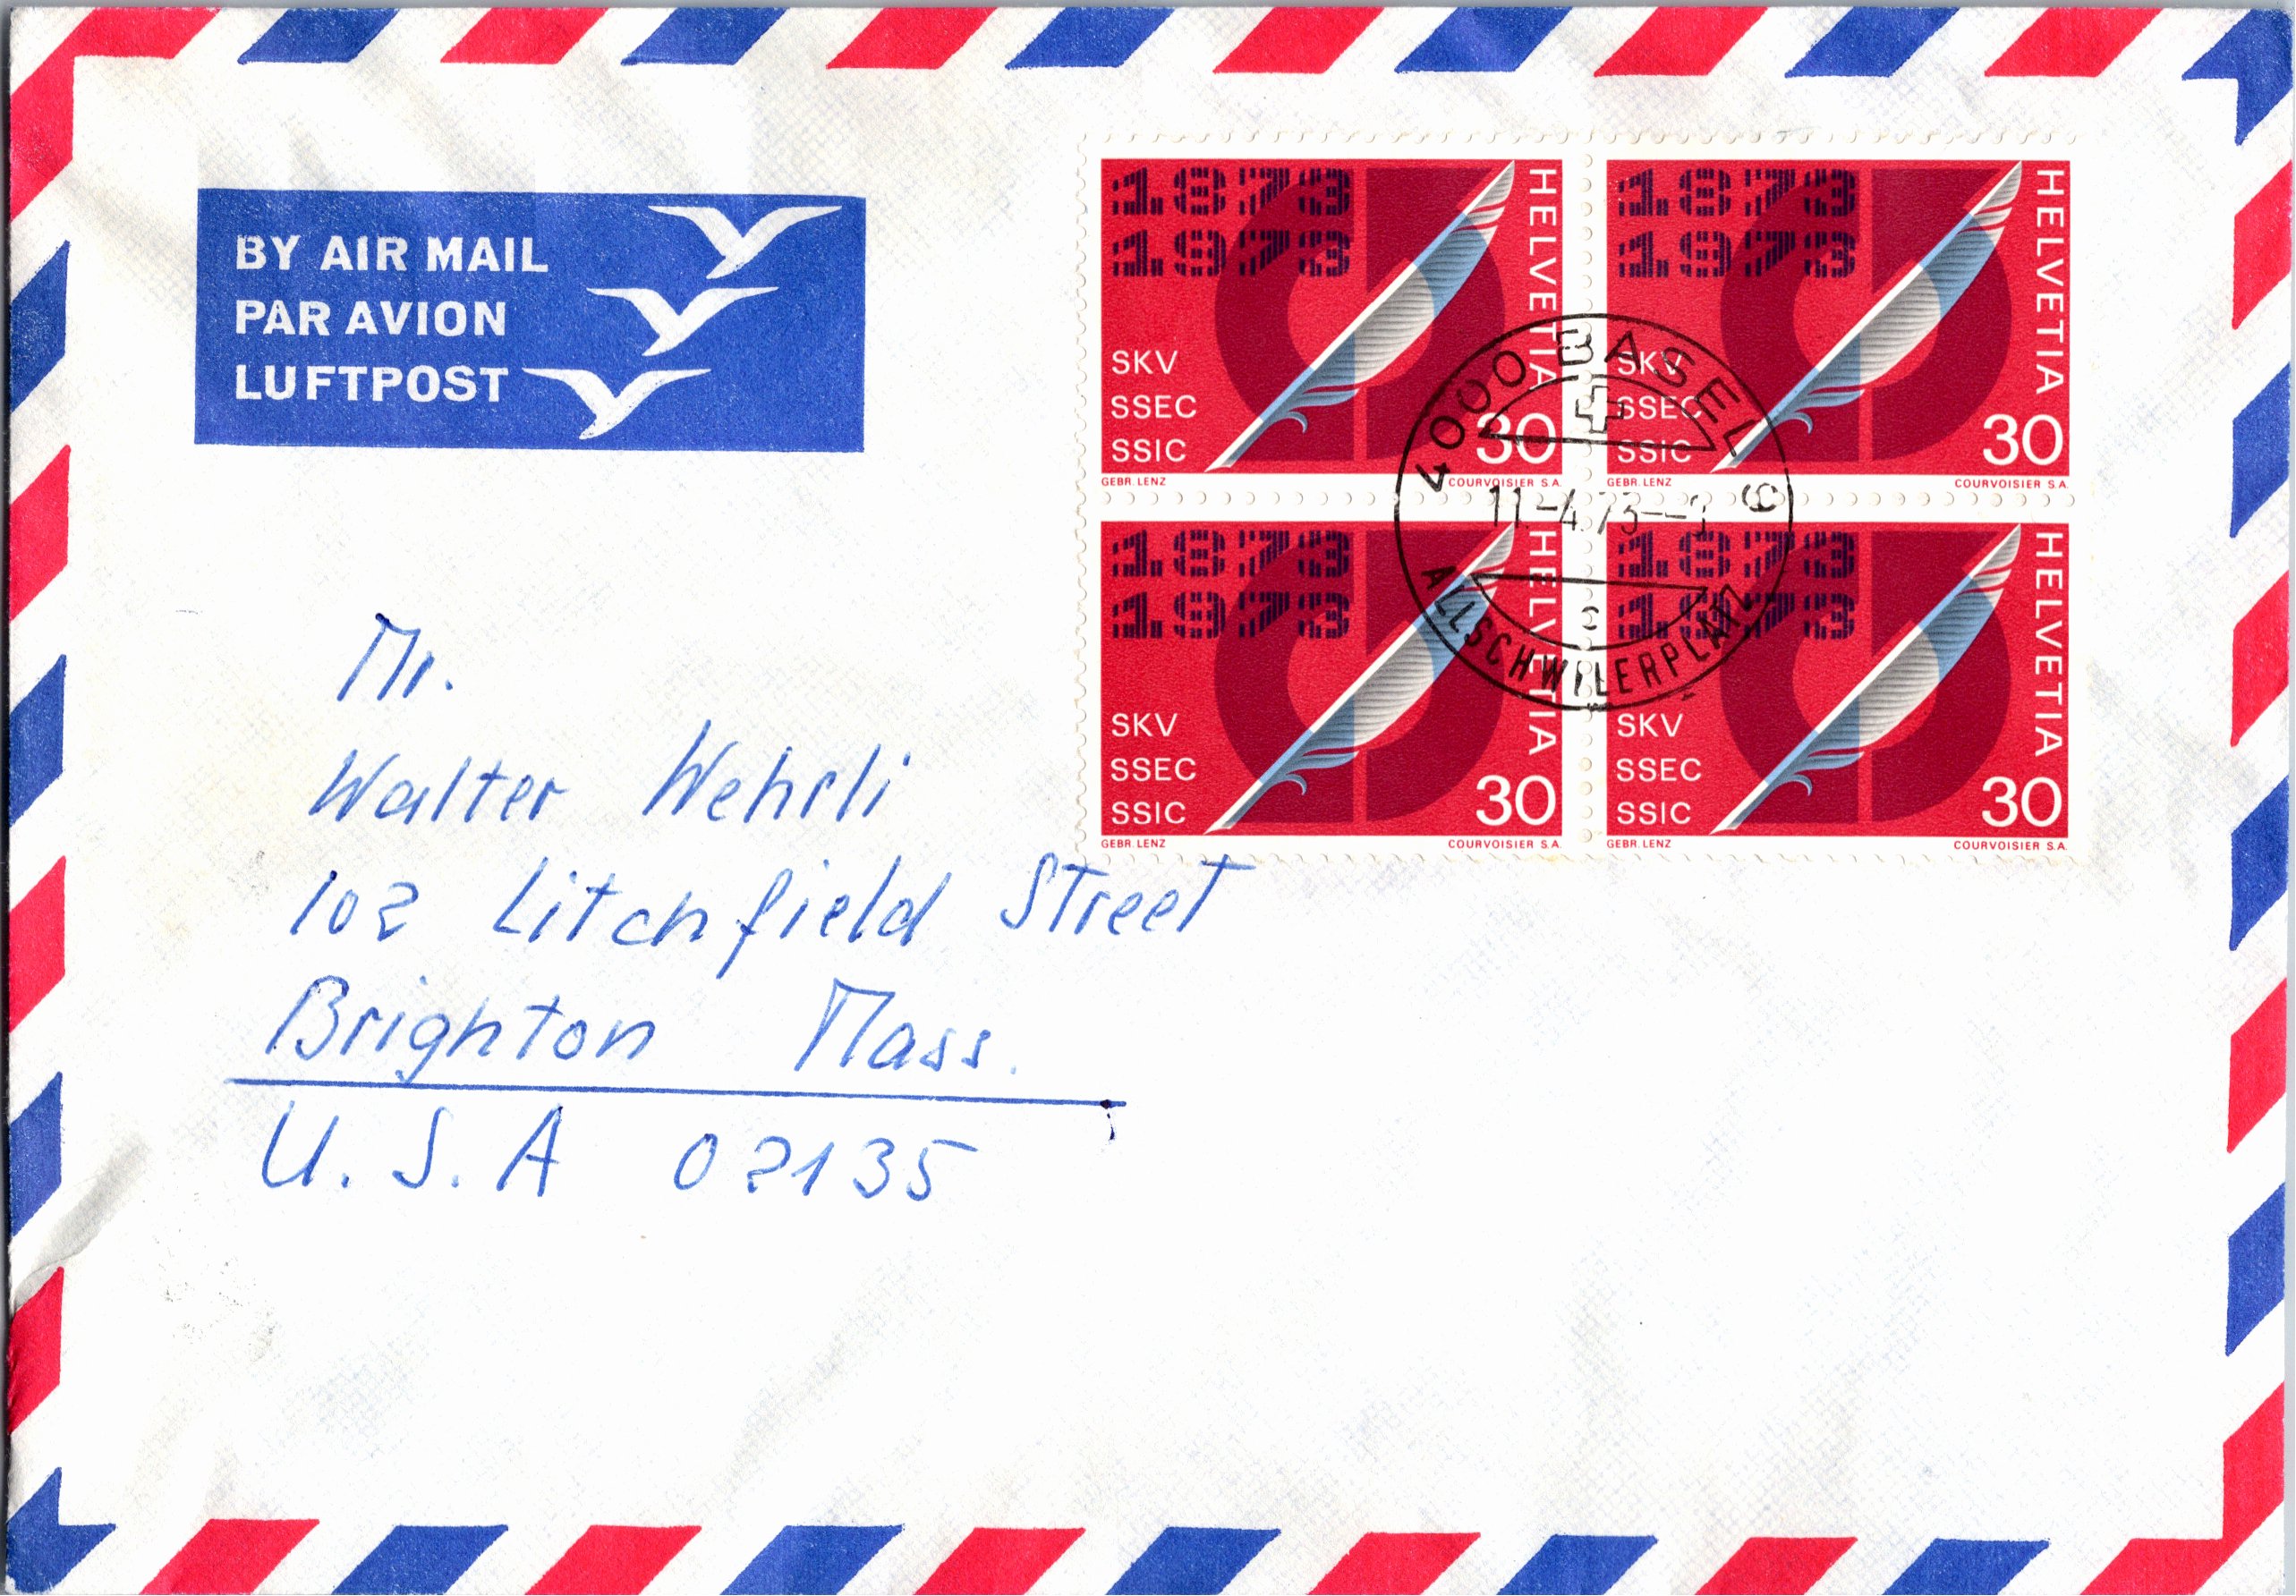 BY AIR MAIL
PAR AVION
LUFTPOST
1873
1973
SKV
SSEC
SSIC
HELVETIA
30
GEBR. LENZ
COURVOISIER S.A.
1873
1973
SKV
SSEC
SSIC
HELVETIA
30
GEBR. LENZ
COURVOISIER S.A.
1873
1973
SKV
SSEC
SSIC
HELVETIA
30
GEBR. LENZ
COURVOISIER S.A.
1873
1973
SKV
SSEC
SSIC
HELVETIA
30
GEBR. LENZ
COURVOISIER S.A.
4000 BASEL 9
11.-4.73--
c
ALLSCHWILERPLATZ
Mr.
Walter Wehrli
102 Litchfield Street
Brighton Mass.
U.S.A 02135